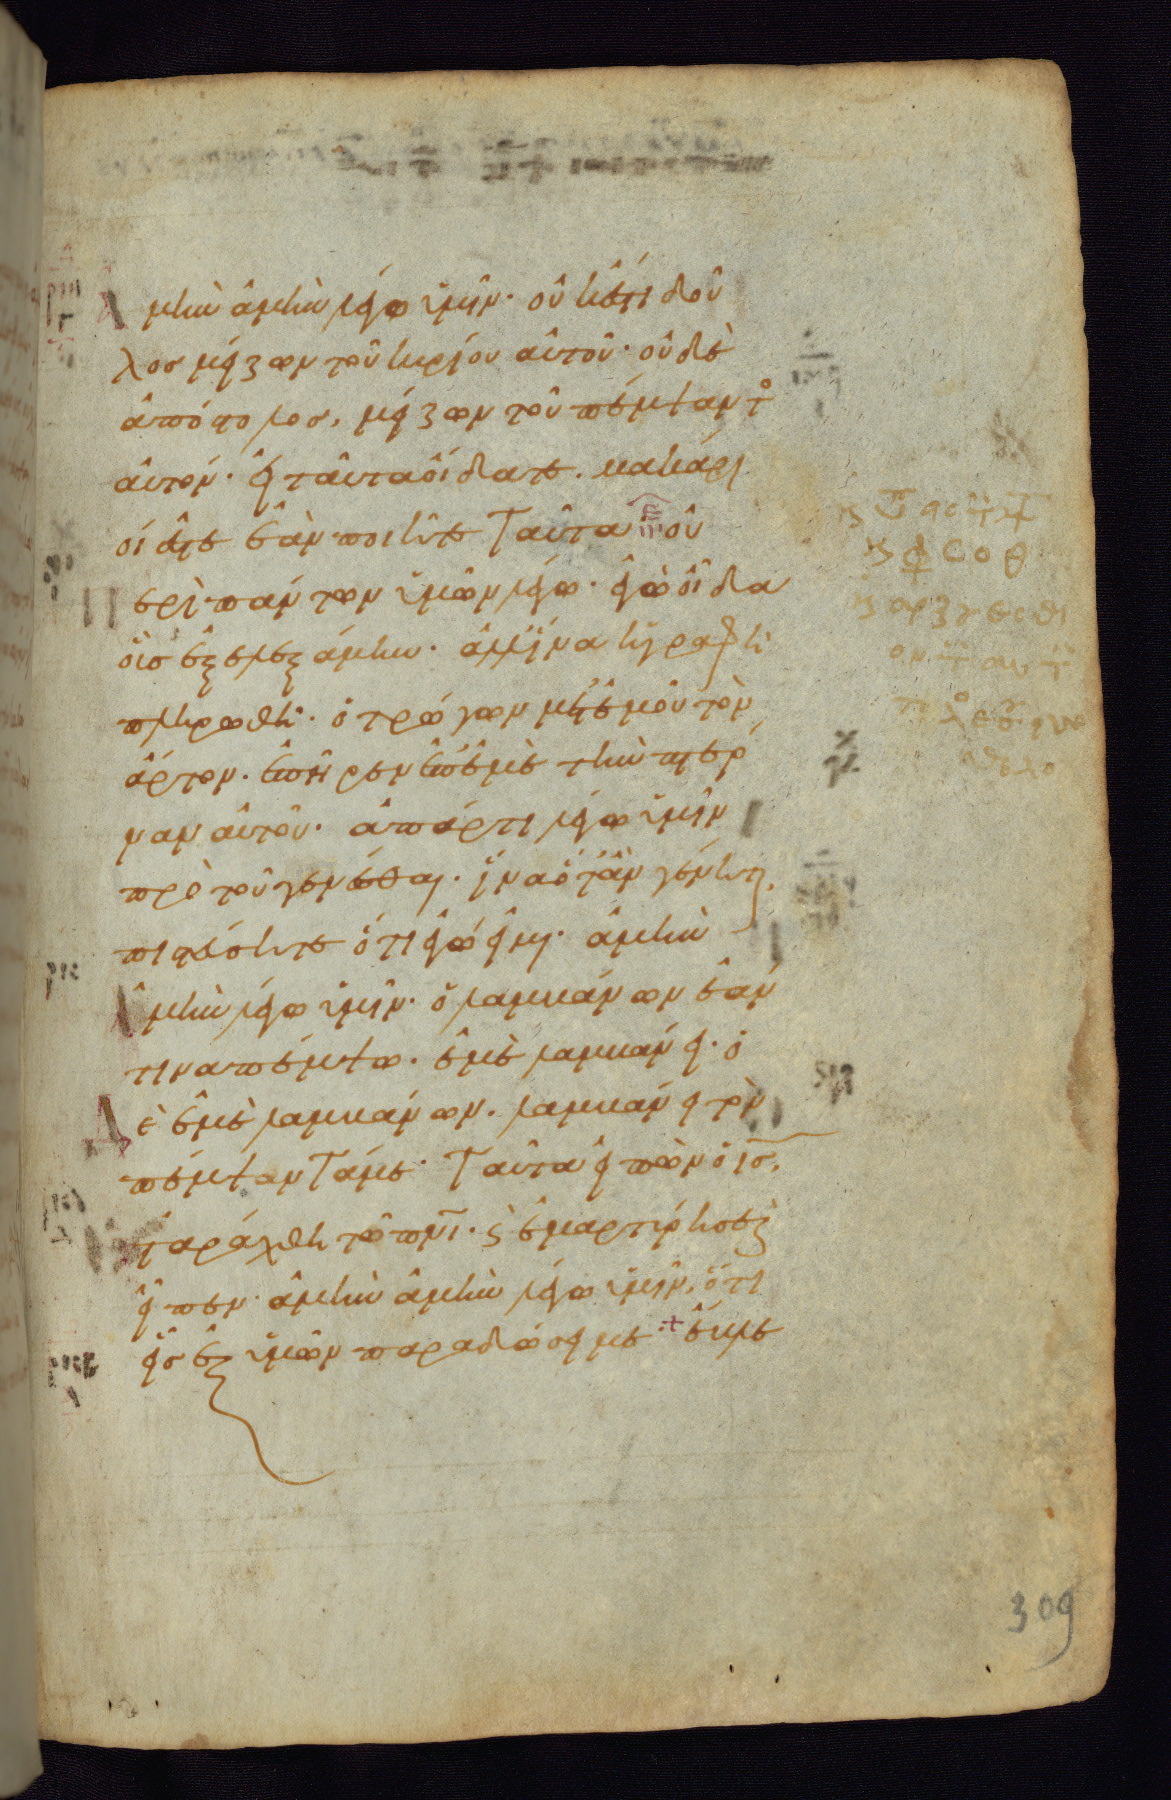 Ἀμὴν ἀμὴν λέγω ὑμῖν· οὐκ ἔστι δοῦ
λος μείζων τοῦ κυρίου αὐτοῦ· οὐδὲ
ἀπόστολος, μείζων τοῦ πέμψαντο
αὐτόν· εἰ ταῦτα οἴδατε. μακάρι
οί ἐστε ἐὰν ποιῆτε ταῦτα· οὐ
Περὶ πάντων ὑμῶν λέγω· ἐγὼ οἶδα
οὓς ἐξελεξάμην. ἀλλ' ἵνα ἡ γραφὴ
πληρωθῆ· ὁ τρώγων μετ' ἐμοῦ τὸν
ἄρτον. ἐπῆρεν ἐπ' ἐμὲ τὴν πτέρ
ναν αὐτοῦ· ἀπάρτι λέγω ὑμῖν
πρὸ τοῦ γενέσθαι. ἵνα ὅταν γένηται,
πιστεύσητε ὅτι ἐγώ εἰμι· ἀμὴν
Ἀμὴν λέγω ὑμῖν· ὁ λαμβάνων ἐάν
τινα πέμψω. ἐμὲ λαμβάνει· ὁ
Δὲ ἐμὲ λαμβάνων. λαμβάνει τὸν
πέμψαντά με· Ταῦτα εἰπὼν ὁ ις,
ἐταράχθη τῶ πνι· καὶ ἐμαρτύρησε καὶ
εἶπεν· ἀμὴν ἀμὴν λέγω ὑμῖν, ὅτι
εἷς ἐξ ὑμῶν παραδώσει με ·+ ἔβλε
309